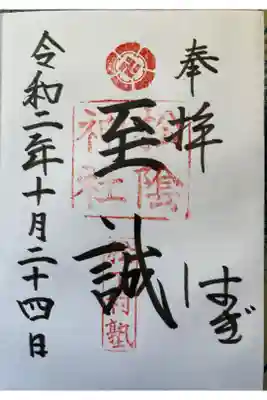 奉拝
はぎ
松陰神社
至誠
松下村塾
令和二年十月二十四日